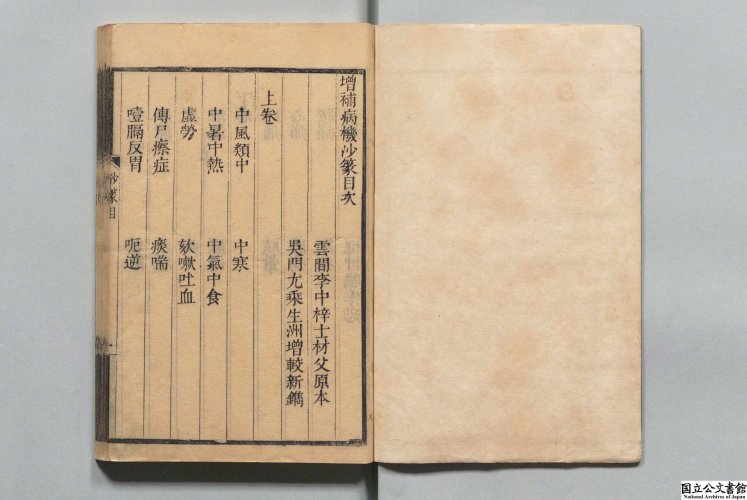 增補病機沙篆目次
雲間李中梓士材父原本
吳門尤乘生洲增較新鐫
上卷
中風類中 中寒
中暑中熱 中氣中食
虛勞 欬嗽吐血
傳尸瘵症 痰喘
噎膈反胃 呃逆
沙篆目
一
国立公文書館
National Archives of Japan